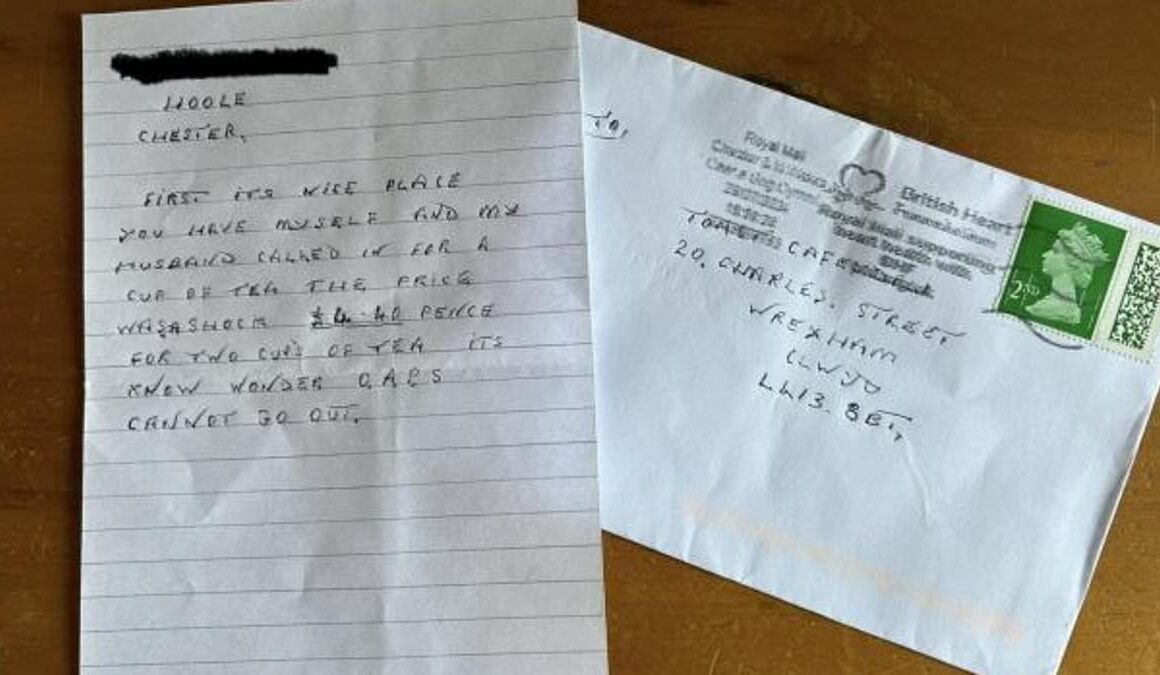 HOOLE
CHESTER,
FIRST ITS NICE PLACE
YOU HAVE MYSELF AND MY
HUSBAND CALLED IN FOR A
CUP OF TEA THE PRICE
WAS A SHOCK £4.40 PENCE
FOR TWO CUPS OF TEA ITS
KNOW WONDER O.A.P.S
CANNOT GO OUT.
TO,
Royal Mail
British Heart
Foundation
Royal Mail supporting
2ND
CAFE
20, CHARLES. STREET
WREXHAM
LL13. 8BT,